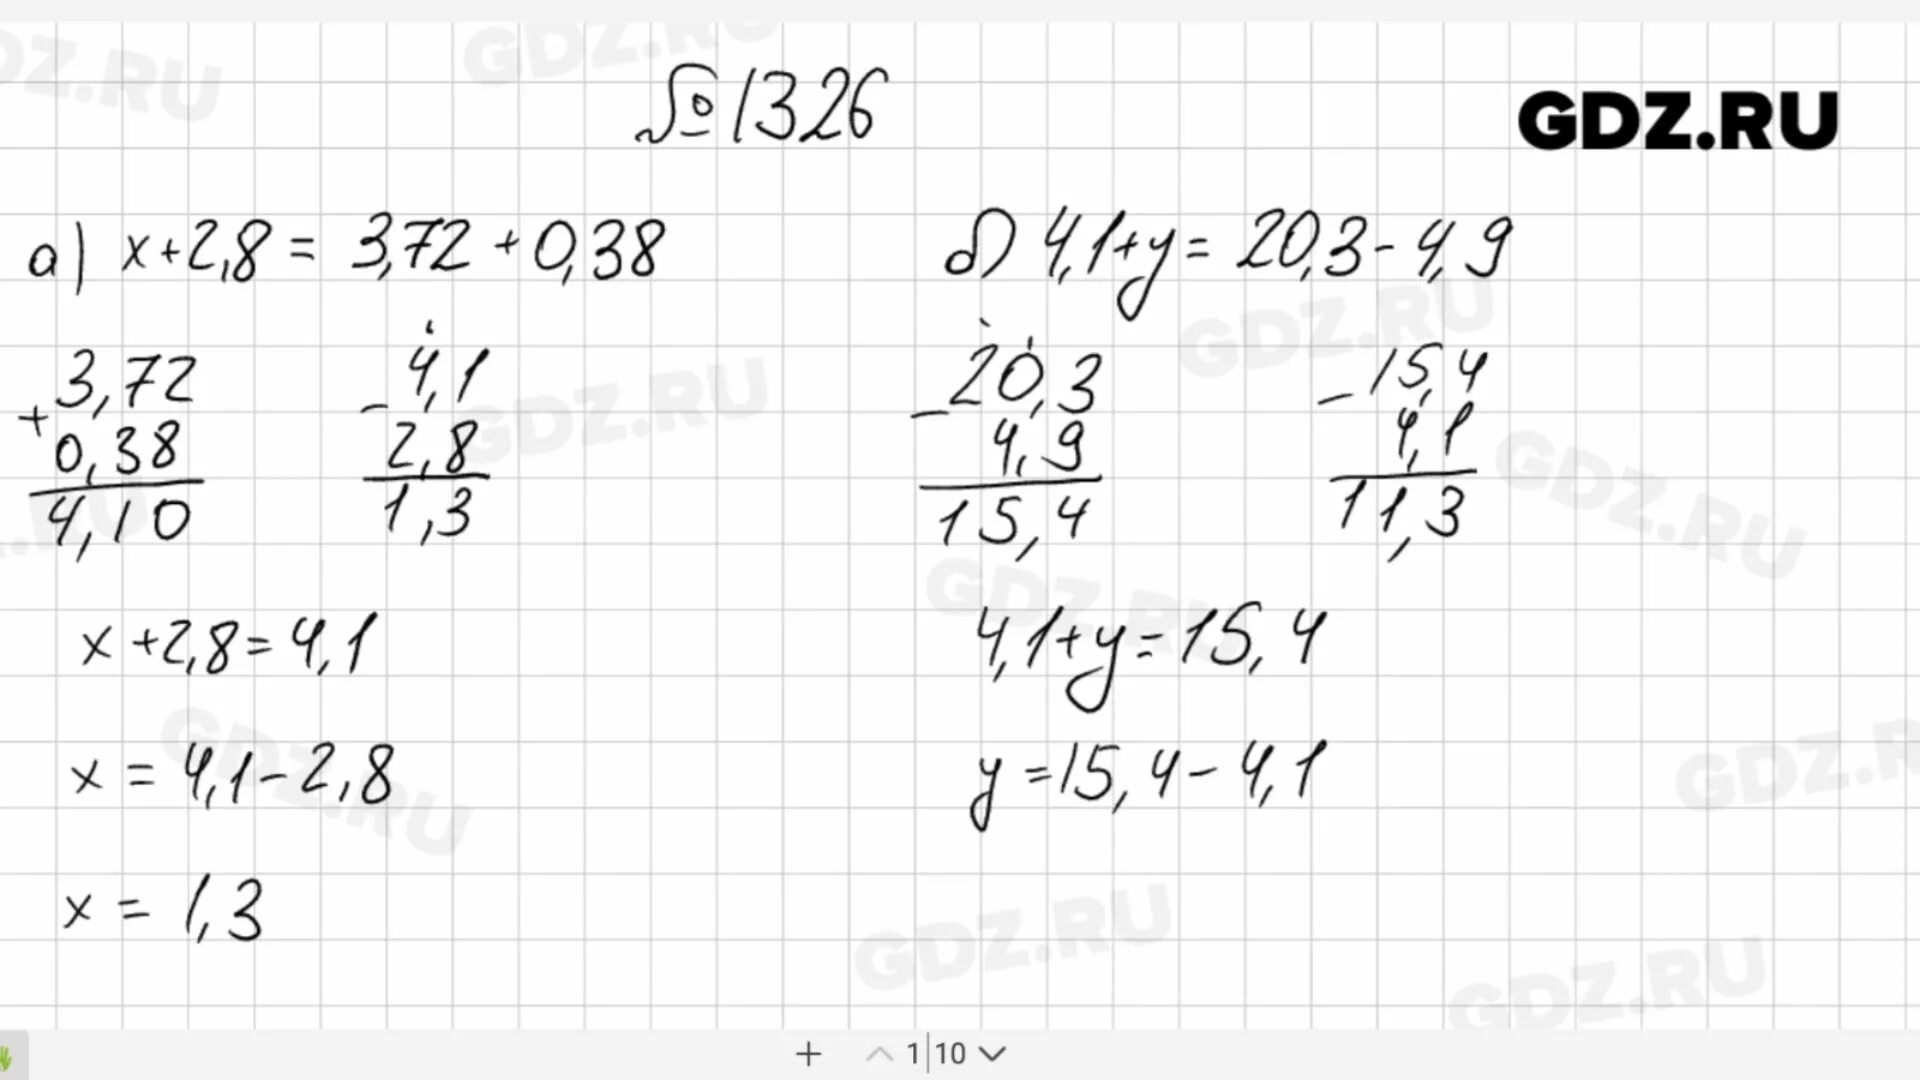 №1326
GDZ.RU
а) x+2,8 = 3,72+0,38
+3,72
0,38
4,10
-4,1
2,8
1,3
x+2,8=4,1
x = 4,1-2,8
x = 1,3
б) 4,1+y= 20,3-4,9
-20,3
4,9
15,4
-15,4
4,1
11,3
4,1+y=15,4
y=15,4-4,1
+ 1|10